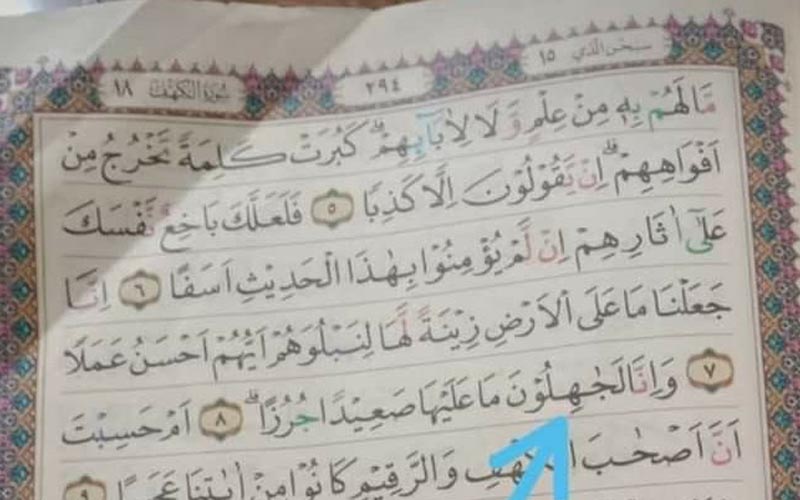 سبحن الذي ١٥
٢٩٤
سورة الكهف ١٨
مَا لَهُمْ بِهٖ مِنْ عِلْمٍ وَّلَا لِاٰبَاۤىِٕهِمْۗ كَبُرَتْ كَلِمَةً تَخْرُجُ مِنْ
اَفْوَاهِهِمْۗ اِنْ يَّقُوْلُوْنَ اِلَّا كَذِبًا ٥ فَلَعَلَّكَ بَاخِعٌ نَّفْسَكَ
عَلٰٓى اٰثَارِهِمْ اِنْ لَّمْ يُؤْمِنُوْا بِهٰذَا الْحَدِيْثِ اَسَفًا ٦ اِنَّا
جَعَلْنَا مَا عَلَى الْاَرْضِ زِيْنَةً لَّهَا لِنَبْلُوَهُمْ اَيُّهُمْ اَحْسَنُ عَمَلًا
٧ وَاِنَّا لَجٰهِلُوْنَ مَا عَلَيْهَا صَعِيْدًا جُرُزًاۗ ٨ اَمْ حَسِبْتَ
اَنَّ اَصْحٰبَ الْكَهْفِ وَالرَّقِيْمِ كَانُوْا مِنْ اٰيٰتِنَا عَجَبًا ٩